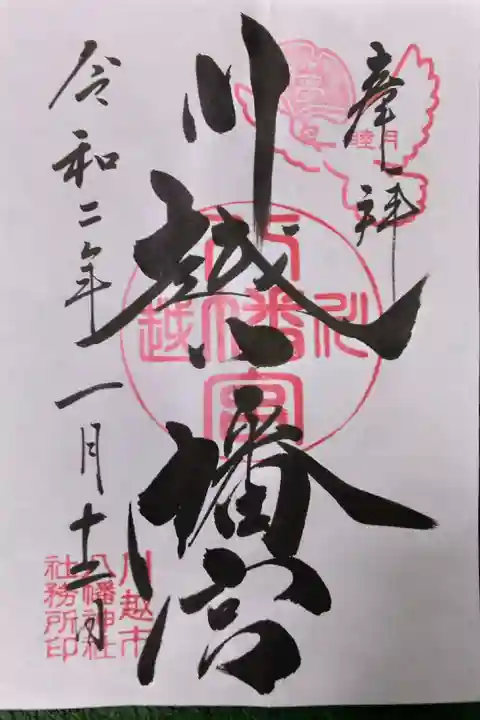 奉拝
睦月
川越八幡宮
川越
八幡宮
令和二年一月十二日
川越市
八幡神社
社務所印